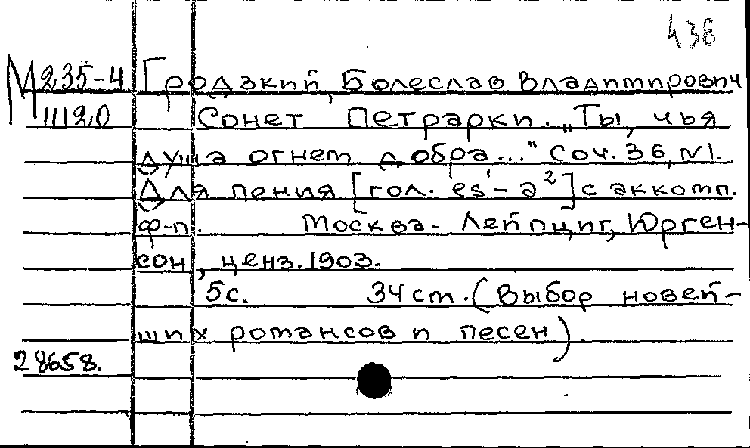 438
М 235-4 Гродзкий, Болеслав Владимирович
1112.0 Сонет Петрарки. „Ты, чья
душа огнем добра..." Соч. 36, N1.
Для пения [гол. es'-a²] с аккомп.
ф-п. Москва-Лейпциг, Юрген-
сон, ценз. 1903.
5 с. 34 см. (Выбор новей-
ших романсов и песен).
28658.